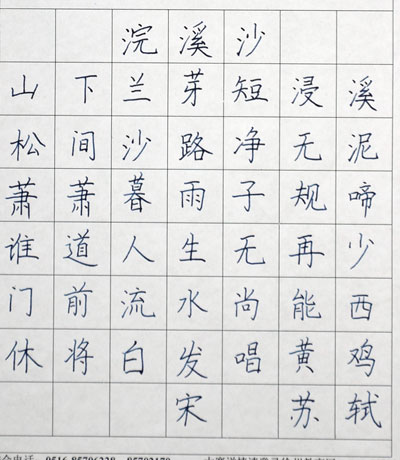 浣溪沙
山下兰芽短浸溪
松间沙路净无泥
萧萧暮雨子规啼
谁道人生无再少
门前流水尚能西
休将白发唱黄鸡
宋 苏轼